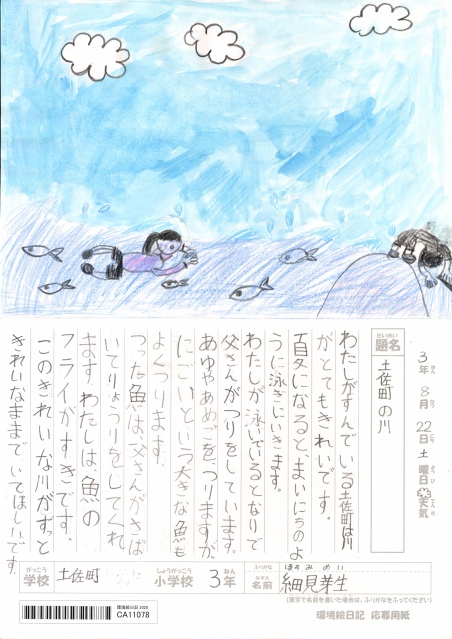 だいめい
題名
土佐町の川
3年 8月 22日 土曜日 天気
わたしがすんでいる土佐町は川
がとてもきれいです。
夏になると、まいにちのよ
うに泳ぎにいきます。
わたしが泳いでいるとなりで
父さんがつりをしています。
あゆやあめごを、つりますが、
にごいという大きな魚も
よくつります。
つった魚は、父さんがさば
いてりょうりをしてくれ
ます。わたしは、魚の
フライがすきです。
このきれいな川がずっと
きれいなままでいてほしいです。
がっこう
学校
土佐町
しょうがっこう
小学校
3年
ねん
ふりがな
ほそみ めい
名前
細見芽生
(漢字で名前を書いた場合は、ふりがなをふってください)
環境絵日記 2020
CA11078
環境絵日記 応募用紙